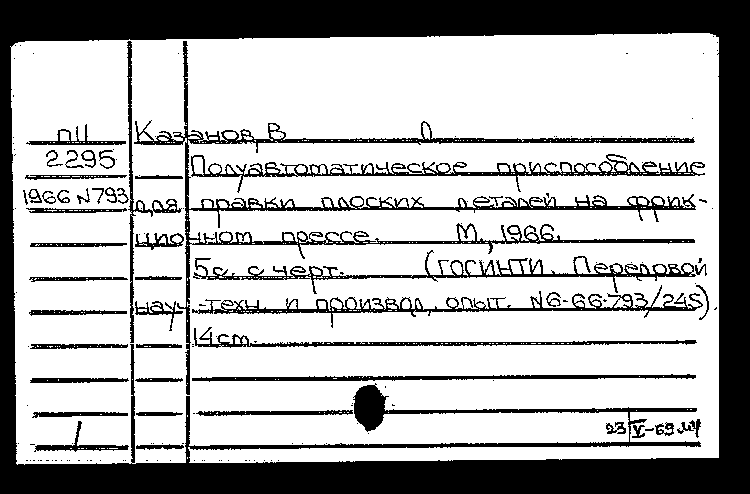 пII Казанов, В
2295 Полуавтоматическое приспособление
1966 N793 для правки плоских деталей на фрик-
ционном прессе. М., 1966.
5с. с черт. (ГОСИНТИ. Передовой
науч.-техн. и производ. опыт. N6-66-793/245).
14 cm.
23/V-69